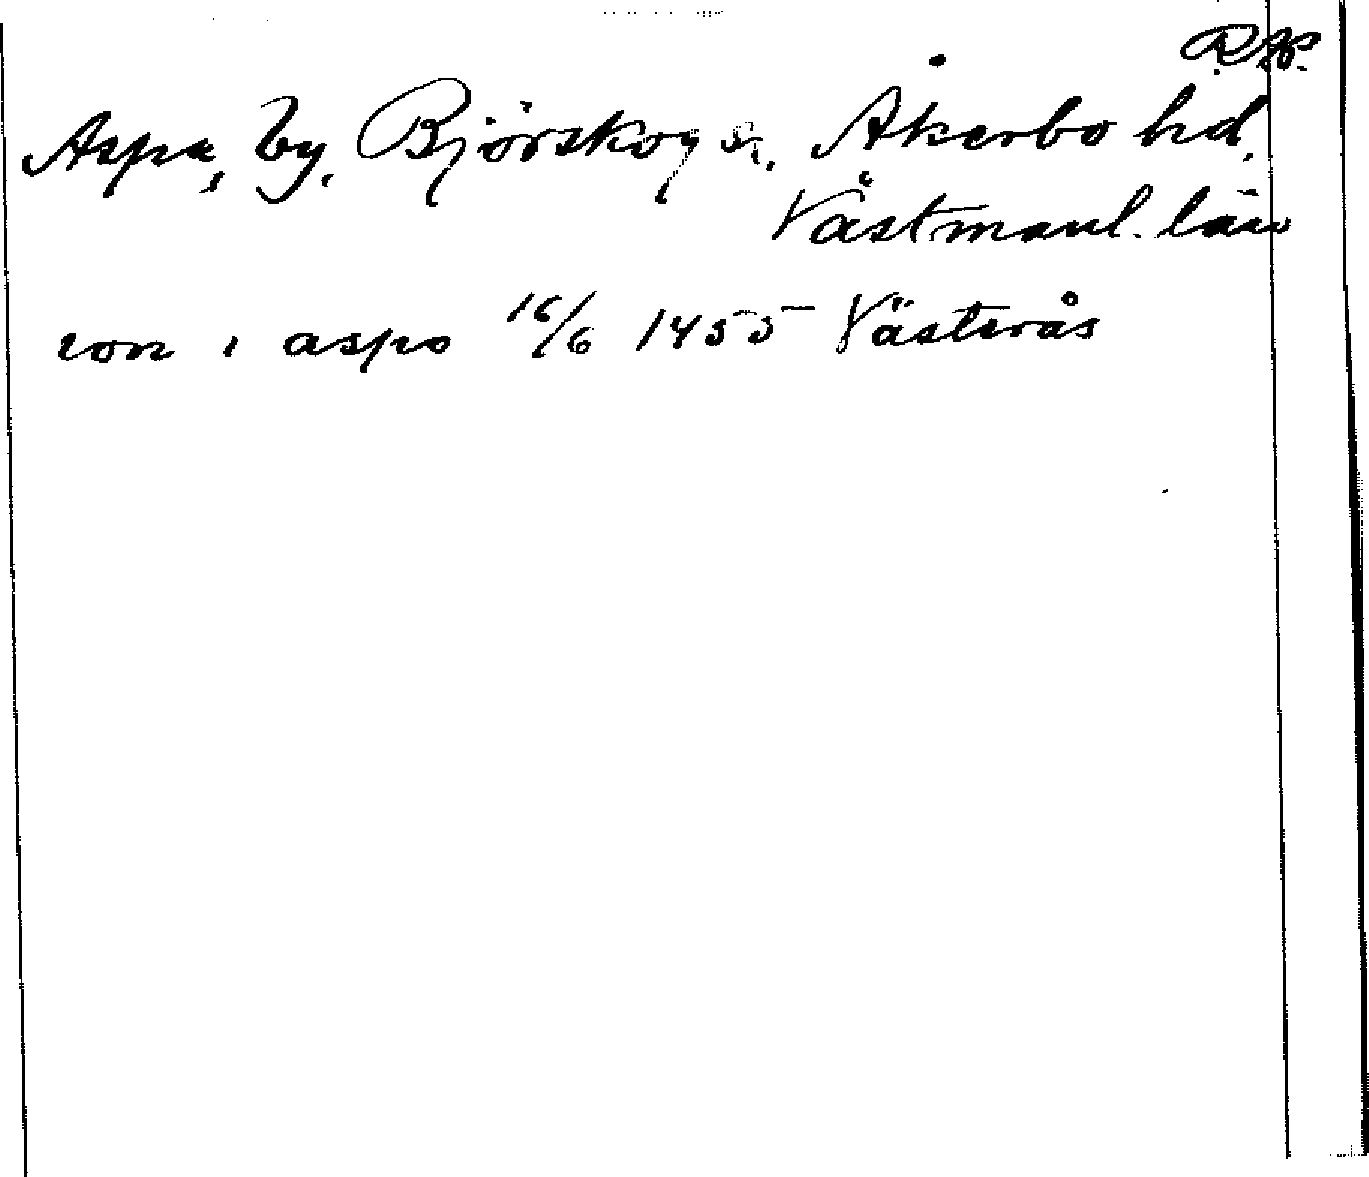 Aspa, by, Björskog sn, Åkerbo hd,
Västmanl. län
ion i aspo 16/6 1455 Västerås